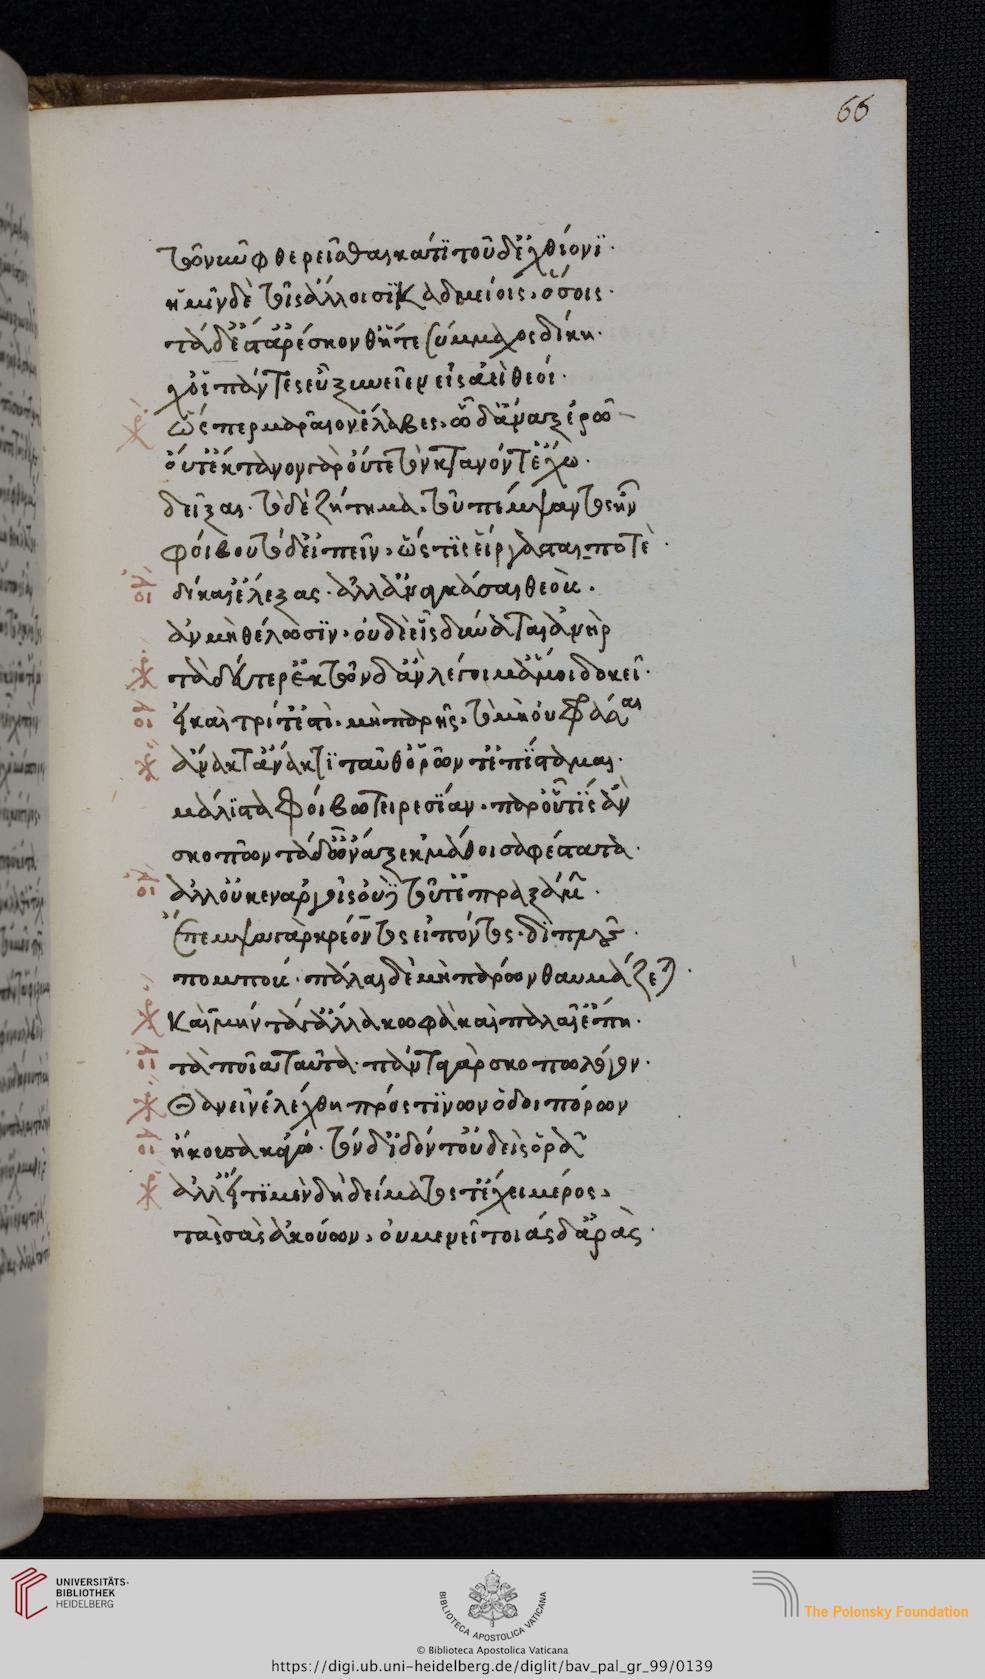 66
τῶν νῦν φθερεῖσθαι κἄτι τοῦδ' ἐχθίονι·
ἡμῖν δὲ τοῖς ἄλλοισι Καδμείοις, ὅσοις·
τάδ' ἔστ' ἀρέσκονθ' ἥτε σύμμαχος δίκη·
χοἱ πάντες εὖ ξυνεῖεν εἰς ἀεὶ θεοί·
χο ὥσπερ μ' ἀραῖον ἔλαβες, ὧδ' ἄναξ ἐρῶ
οὔτ' ἔκτανον γὰρ οὔτε τὸν κτανόντ' ἔχω·
δεῖξαι· τὸ δὲ ζήτημα, τοῦ πέμψαντος ἦν
φοίβου τόδ' εἰπεῖν, ὅστις εἴργασται ποτέ·
οι δίκαι' ἔλεξας· ἀλλ' ἀναγκάσαι θεοὺς·
ἂν μὴ θέλωσιν, οὐδ' ἂν εἷς δύναιτ' ἀνήρ
χο τὰ δεύτερ' ἐκ τῶνδ' ἂν λέγοιμ' ἅ μοι δοκεῖ·
οι εἰ καὶ τρίτ' ἐστὶ, μὴ παρῇς, τὸ μὴ οὐ φράσαι
χο ἄνακτ' ἄνακτι ταῦθ' ὁρῶντ' ἐπίσταμαι·
μάλιστα Φοίβω Τειρεσίαν, παρ' οὗ τις ἂν
σκοπῶν τάδ' ὦναξ ἐκμάθοι σαφέστατα·
οι ἀλλ' οὐκ ἐν ἀργοῖς οὐδὲ τοῦτ' ἐπραξάμην·
ἔπεμψα γὰρ κρέοντος εἰπόντος διπλοῦς·
πομποὺς· πάλαι δὲ μὴ παρὼν θαυμάζεται·
χο Καὶ μὴν τά γ' ἄλλα κωφὰ καὶ παλαί' ἔπη·
οι τὰ ποῖα ταῦτα· πάντα γὰρ σκοπῶ λόγον·
χο Θανεῖν ἐλέχθη πρός τινων ὁδοιπόρων
οι ἤκουσα κἀγώ· τὸν δ' ἰδόντ' οὐδεὶς ὁρᾷ
χο ἀλλ' εἴ τι μὲν δὴ δείματός τ' ἔχει μέρος,
τὰς σὰς ἀκούων, οὐ μενεῖ τοιάσδ' ἀράς·
UNIVERSITÄTS-
BIBLIOTHEK
HEIDELBERG
BIBLIOTECA APOSTOLICA VATICANA
The Polonsky Foundation
© Biblioteca Apostolica Vaticana
https://digi.ub.uni-heidelberg.de/diglit/bav_pal_gr_99/0139